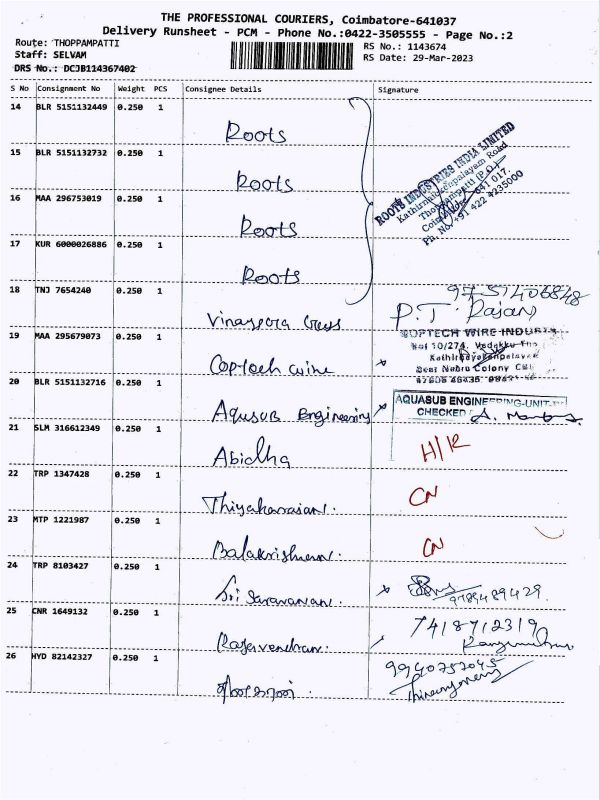 THE PROFESSIONAL COURIERS, Coimbatore-641037
Delivery Runsheet - PCM - Phone No.:0422-3505555 - Page No.:2
Route: THOPPAMPATTI
RS No.: 1143674
Staff: SELVAM
RS Date: 29-Mar-2023
DRS No.: DCJB114367402
S No Consignment No Weight PCS Consignee Details Signature
14 BLR 5151132449 0.250 1
Roots
15 BLR 5151132732 0.250 1
Roots
ROOTS INDUSTRIES INDIA LIMITED
Kathirnaickenpalayam Road
Thoppampatti (P.O)
641 017.
Ph. No. +91 422 4235000
16 MAA 296753019 0.250 1
Roots
17 KUR 6000026886 0.250 1
Roots
18 TNJ 7654240 0.250 1
9751406848
P.T. Rajan
19 MAA 295679073 0.250 1
COPTECH WIRE INDUST
Coptech wire
20 BLR 5151132716 0.250 1
AQUASUB ENGINEERING-UNIT-
CHECKED
Aqusub Engineering
21 SLM 316612349 0.250 1
Abidha
H/R
22 TRP 1347428 0.250 1
CN
Thiyaharajan.
23 MTP 1221987 0.250 1
CN
Balakrishnan.
24 TRP 8103427 0.250 1
Sri Saravanan.
9789489429.
25 CNR 1649132 0.250 1
7418712319
26 HYD 82142327 0.250 1
9940757045